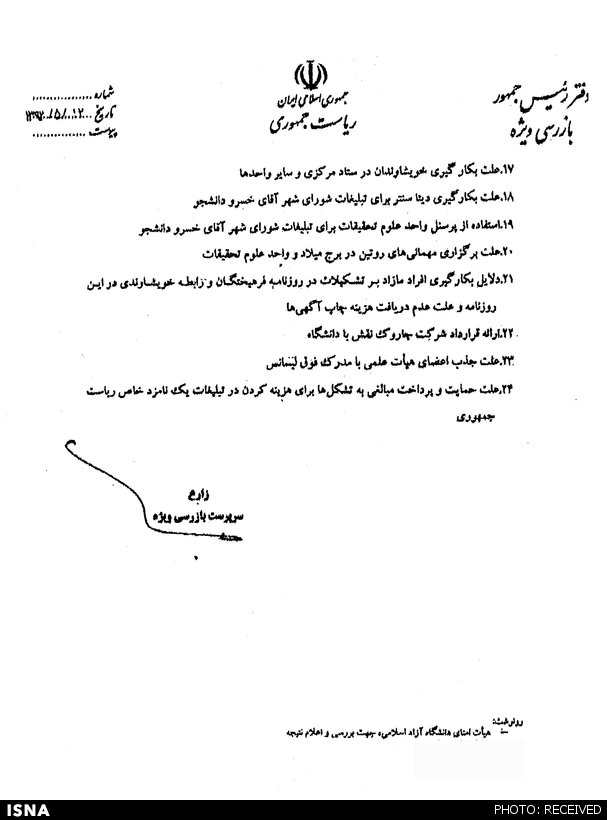 دفتر رئیس جمهور
بازرسی ویژه
جمهوری اسلامی ایران
ریاست جمهوری
شماره ................
تاریخ
پیوست ..............
۱۷.علت بکارگیری خویشاوندان در ستاد مرکزی و سایر واحدها
۱۸.علت بکارگیری دیتا سنتر برای تبلیغات شورای شهر آقای خسرو دانشجو
۱۹.استفاده از پرسنل واحد علوم تحقیقات برای تبلیغات شورای شهر آقای خسرو دانشجو
۲۰.علت برگزاری مهمانی‌های روتین در برج میلاد و واحد علوم تحقیقات
۲۱.دلایل بکارگیری افراد مازاد بر تشکیلات در روزنامه فرهیختگان و رابطه خویشاوندی در این
روزنامه و علت عدم دریافت هزینه چاپ آگهی‌ها
۲۲.ارائه قرارداد شرکت چاروک نقش با دانشگاه
۲۳.علت جذب اعضای هیأت علمی با مدرک فوق لیسانس
۲۴.علت حمایت و پرداخت مبالغی به تشکل‌ها برای هزینه کردن در تبلیغات یک نامزد خاص ریاست
جمهوری
زارع
سرپرست بازرسی ویژه
رونوشت:
- هیأت امنای دانشگاه آزاد اسلامی، جهت بررسی و اعلام نتیجه
ISNA
PHOTO: RECEIVED